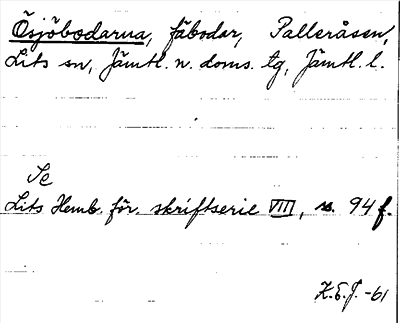 Ösjöbodarna, fäbodar, Palleråsen,
Lits sn, Jämtl. n. doms. tg, Jämtl. l.
Se
Lits Hemb. för. skriftserie VIII, s. 94 f.
K.E.J. -61